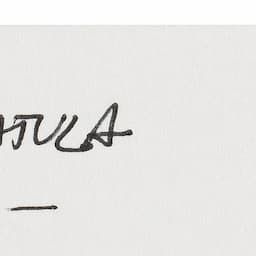 ATULA
—